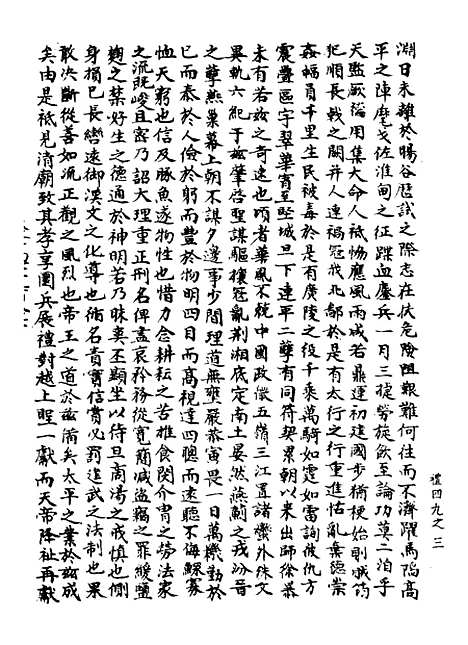 淵日未離於暘谷歷試之際志在扶危險阻艱難何往而不濟躍馬隔高
平之陣麾戈佐淮甸之征蹀血鏖兵一月三捷勞旋飲至論功莫二洎乎
天監厥德用集大命人祇協應風雨咸若鼎運初建國步猶梗始則城筠
犯順長戟之闕并人連禍冦我北鄙於是有太行之行重進怙亂棄德崇
姦幅員千里生民被毒於是有廣陵之役千乘萬騎如霆如雷詢彼仇方
震疊區宇翠華宵至堅城旦下連平二孽有同符契累朝以來出師徐暴
未有若兹之奇速也頃者華風不統中國政徽五嶺三江置諸蠻外殊文
異軌六紀于兹肇啓聖謀驅攘冦亂荆湘底定南土晏然庾薊之戎汾晉
之孽燕巢幕上朝不謀夕邊事少間理道無壅嚴恭寅畏一日萬機勤於
已而泰於人儉於躬而豐於物明四目而高視達四聰而遠聽不侮鰥寡
恤天窮也信及豚魚遂物性也惜力念耕耘之苦推食閔介胄之勞法家
之流既峻且密乃詔大理重正刑名俾盡哀矜務從寬簡減盜竊之罪緩鹽
麴之禁好生之德通於神明若乃昧爽丕顯坐以待旦商湯之戒慎也側
身損已長轡遠御漢文之化導也脩名責實信賞必罰造武之法制也果
敢决斷從善如流正觀之風烈也帝王之道於兹備矣太平之業於兹成
矣由是祗見清廟致其孝享圜兵展禮對越上聖一獻而天帝降祉再獻
禮四九之三